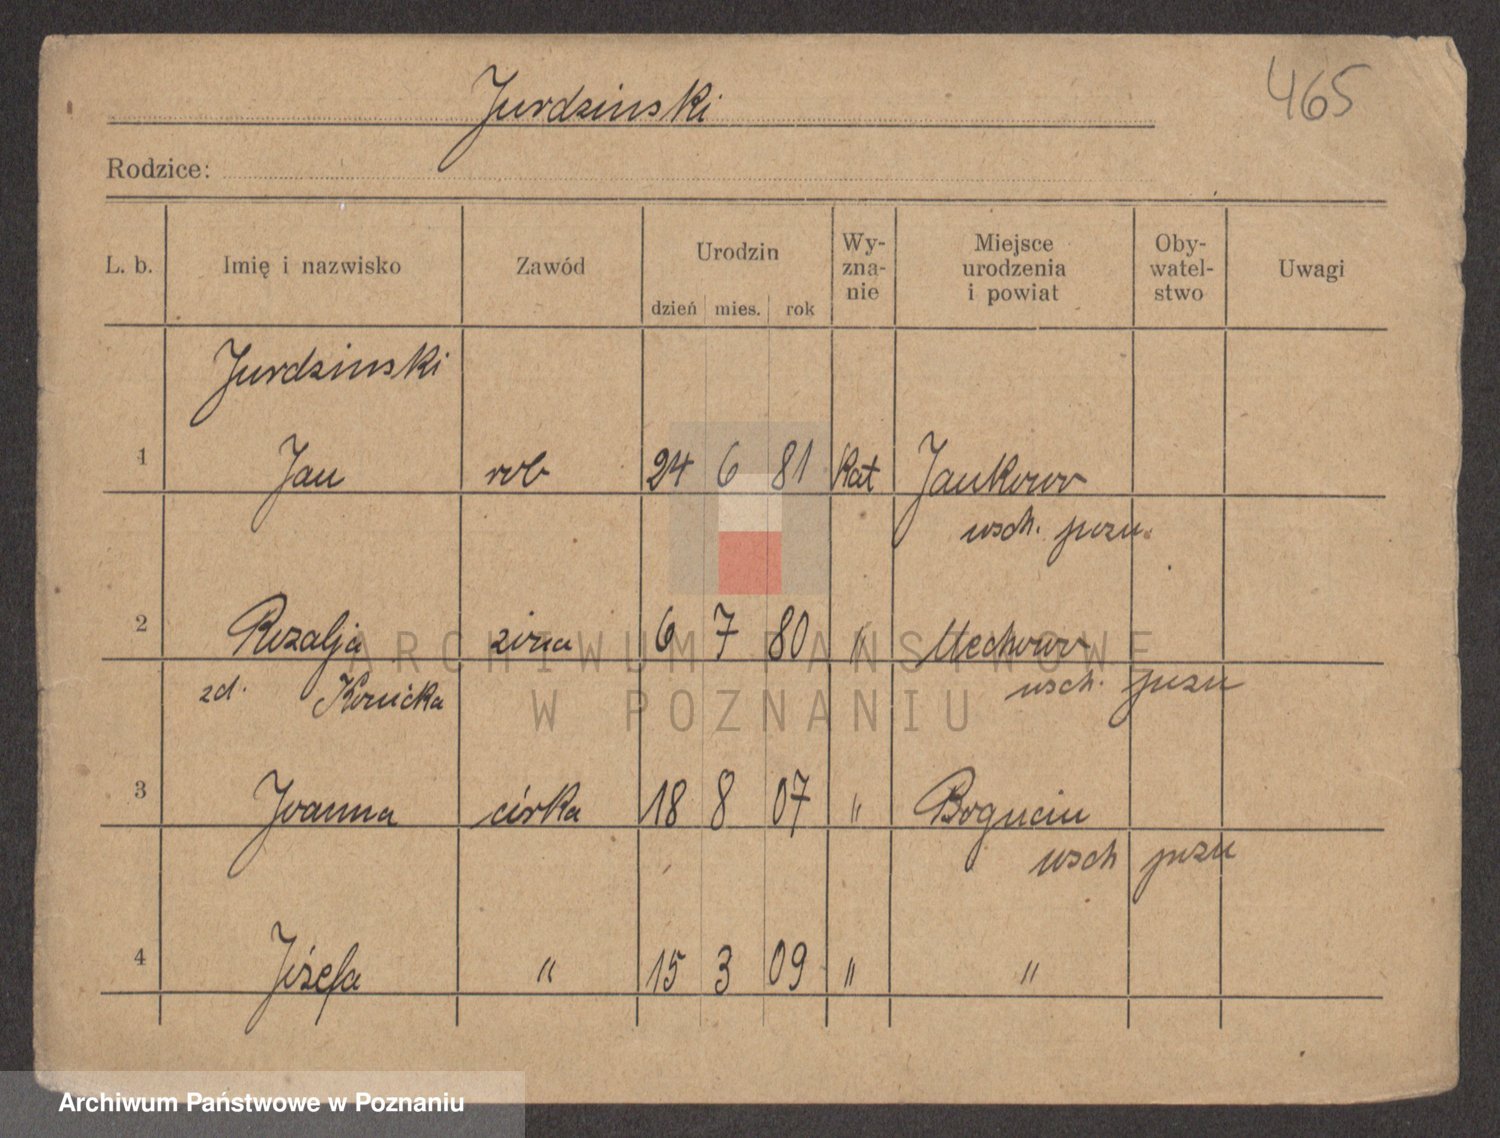 465
Jurdzinski
Rodzice:
L. b. Imię i nazwisko Zawód Urodzin dzień mies. rok Wy-zna-nie Miejsce urodzenia i powiat Oby-watel-stwo Uwagi
Jurdzinski
1 Jan rob 24 6 81 Kat Jankowo
wsch. pozn.
2 Rozalja żona 6 7 80 " Mechowo
zd. Konicka wsch. pozn
3 Joanna córka 18 8 07 " Bogucin
wsch pozn
4 Józefa " 15 3 09 " "
ARCHIWUM PAŃSTWOWE
W POZNANIU
Archiwum Państwowe w Poznaniu